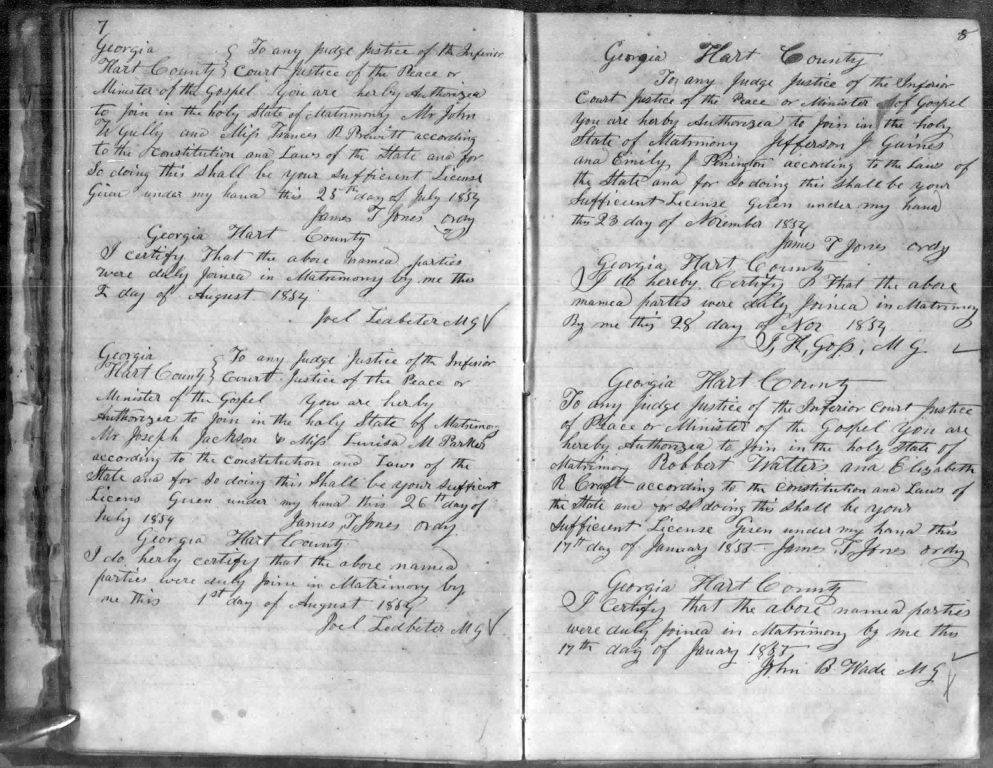 7
Georgia } To any Judge Justice of the Inferior
Hart County } Court Justice of the Peace or
Minister of the Gospel You are herby Authorized
to Join in the holy State of Matrimony Mr John
W Gully and Miss Frances R Prewitt according
to the Constitution and Laws of the State and for
So doing this Shall be your Sufficient License
Given under my hand this 25th day of July 1854
James T Jones ordy
Georgia Hart County
I certify That the above named parties
were duly Joined in Matrimony by me this
2 day of August 1854
Joel Ledbeter M G
Georgia } To any Judge Justice of the Inferior
Hart County } Court Justice of the Peace or
Minister of the Gospel You are herby
Authorized to Join in the holy State of Matrimony
Mr Joseph Jackson & Miss M Parks
according to the constitution and Laws of the
State and for So doing this Shall be your Sufficent
Licens Given under my hand this 26th day of
July 1854 James T Jones ordy
Georgia Hart County
I do herby certify that the above named
parties were duly Joine in Matrimony by
me this 1st day of August 1854
Joel Ledbeter M G
8
Georgia Hart County
To any Judge Justice of the Inferior
Court Justice of the Peace or Minister of Gospel
You are herby Authorized to Join in the holy
State of Matrimony Jefferson J Gaines
and Emily J Pinington according to the Laws of
the State and for So doing this Shall be your
Sufficient License Given under my hand
this 23 day of November 1854
James T Jones ordy
Georgia Hart County
I do hereby Certify that the above
named parties were duly Joined in Matrimony
By me this 28 day of Nov 1854
J. H. Goss, M G
Georgia Hart County
To any Judge Justice of the Inferior Court Justice
of Peace or Minister of the Gospel You are
hereby Authorized to Join in the holy State of
Matrimony Robbert Watters and Elizabeth
R Craft according to the Constitution and Laws of
the State and for So doing this Shall be your
Sufficient License Given under my hand this
17th day of January 1855 James T. Jones ordy
Georgia Hart County
I Certify that the above named parties
were duly Joined in Matrimony by me this
17th day of Janary 1855
John B Wade M G